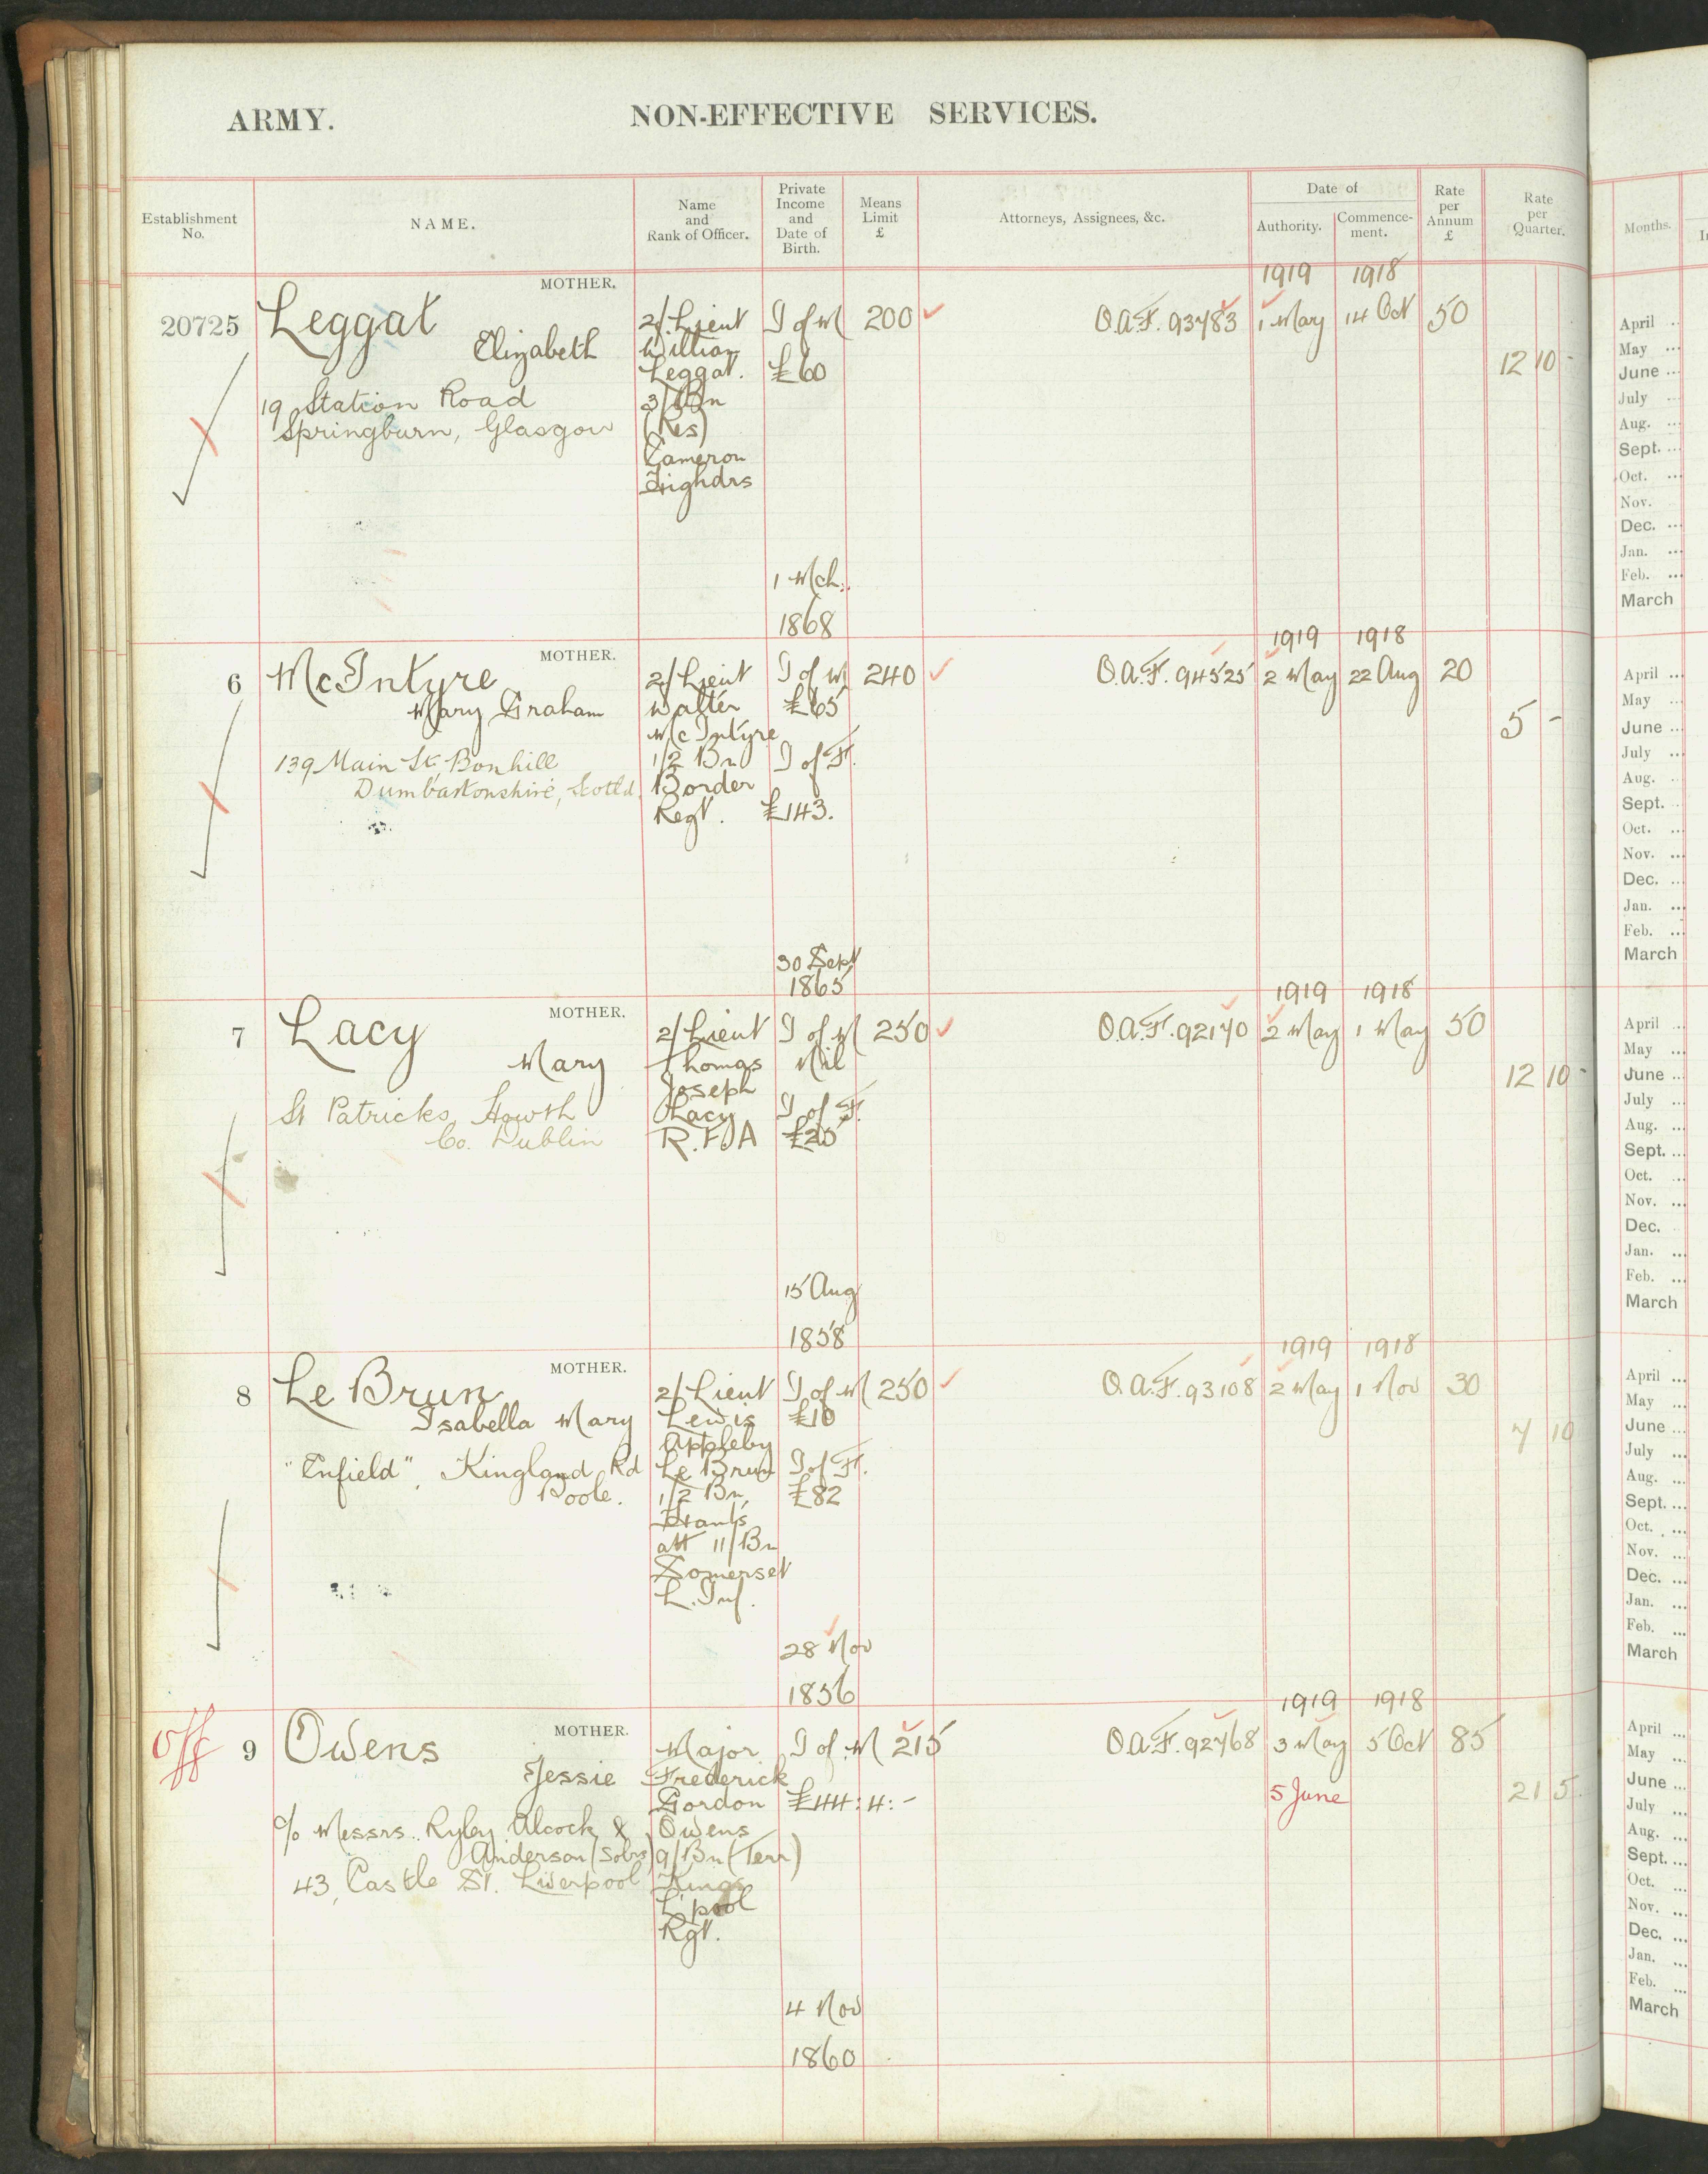 ARMY. NON-EFFECTIVE SERVICES.
Establishment No. NAME. Name and Rank of Officer. Private Income and Date of Birth. Means Limit £ Attorneys, Assignees, &c. Date of Authority. Commence-ment. Rate per Annum £ Rate per Quarter. Months.
MOTHER. 1919 1918
20725 Leggat 2/Lieut I of M 200 O.A.F. 93783 1 May 14 Oct 50
Elizabeth William
Leggat. £60 12 10 -
19 Station Road 3/Bn
Springburn, Glasgow (Res)
Cameron
Highdrs
1 Mch.
1868
MOTHER. 1919 1918
6 McIntyre 2/Lieut I of M 240 O.A.F. 94525 2 May 22 Aug 20
Mary Graham Walter £65
McIntyre 5 -
139 Main St, Bonhill 1/2 Bn I of F.
Dumbartonshire, Scotld. Border
Regt. £143.
30 Sept
1865
MOTHER. 1919 1918
7 Lacy 2/Lieut I of M 250 O.A.F. 92170 2 May 1 May 50
Mary Thomas Nil
Joseph 12 10 -
St Patricks, Howth Lacy I of F.
Co. Dublin R.F.A £25
15 Aug
1858
MOTHER. 1919 1918
8 Le Brun 2/Lieut I of M 250 O.A.F. 93108 2 May 1 Nov 30
Isabella Mary Lewis £10
Appleby 7 10
"Enfield", Kingland Rd Le Brun I of F.
Poole. 1/2 Bn, £82
Hants
att 11/Bn
Somerset
L. Inf.
28 Nov
1856
MOTHER. 1919 1918
Off 9 Owens Major I of M 215 O.A.F. 92768 3 May 5 Oct 85
Jessie Frederick
Gordon £44:4:- 5 June 21 5
c/o Messrs. Ryley Alcock & Owens
Anderson (Solrs) 9/Bn (Terr)
43, Castle St. Liverpool Kings
L'pool
Rgt.
4 Nov
1860
April
May
June
July
Aug.
Sept.
Oct.
Nov.
Dec.
Jan.
Feb.
March
April
May
June
July
Aug.
Sept.
Oct.
Nov.
Dec.
Jan.
Feb.
March
April
May
June
July
Aug.
Sept.
Oct.
Nov.
Dec.
Jan.
Feb.
March
April
May
June
July
Aug.
Sept.
Oct.
Nov.
Dec.
Jan.
Feb.
March
April
May
June
July
Aug.
Sept.
Oct.
Nov.
Dec.
Jan.
Feb.
March